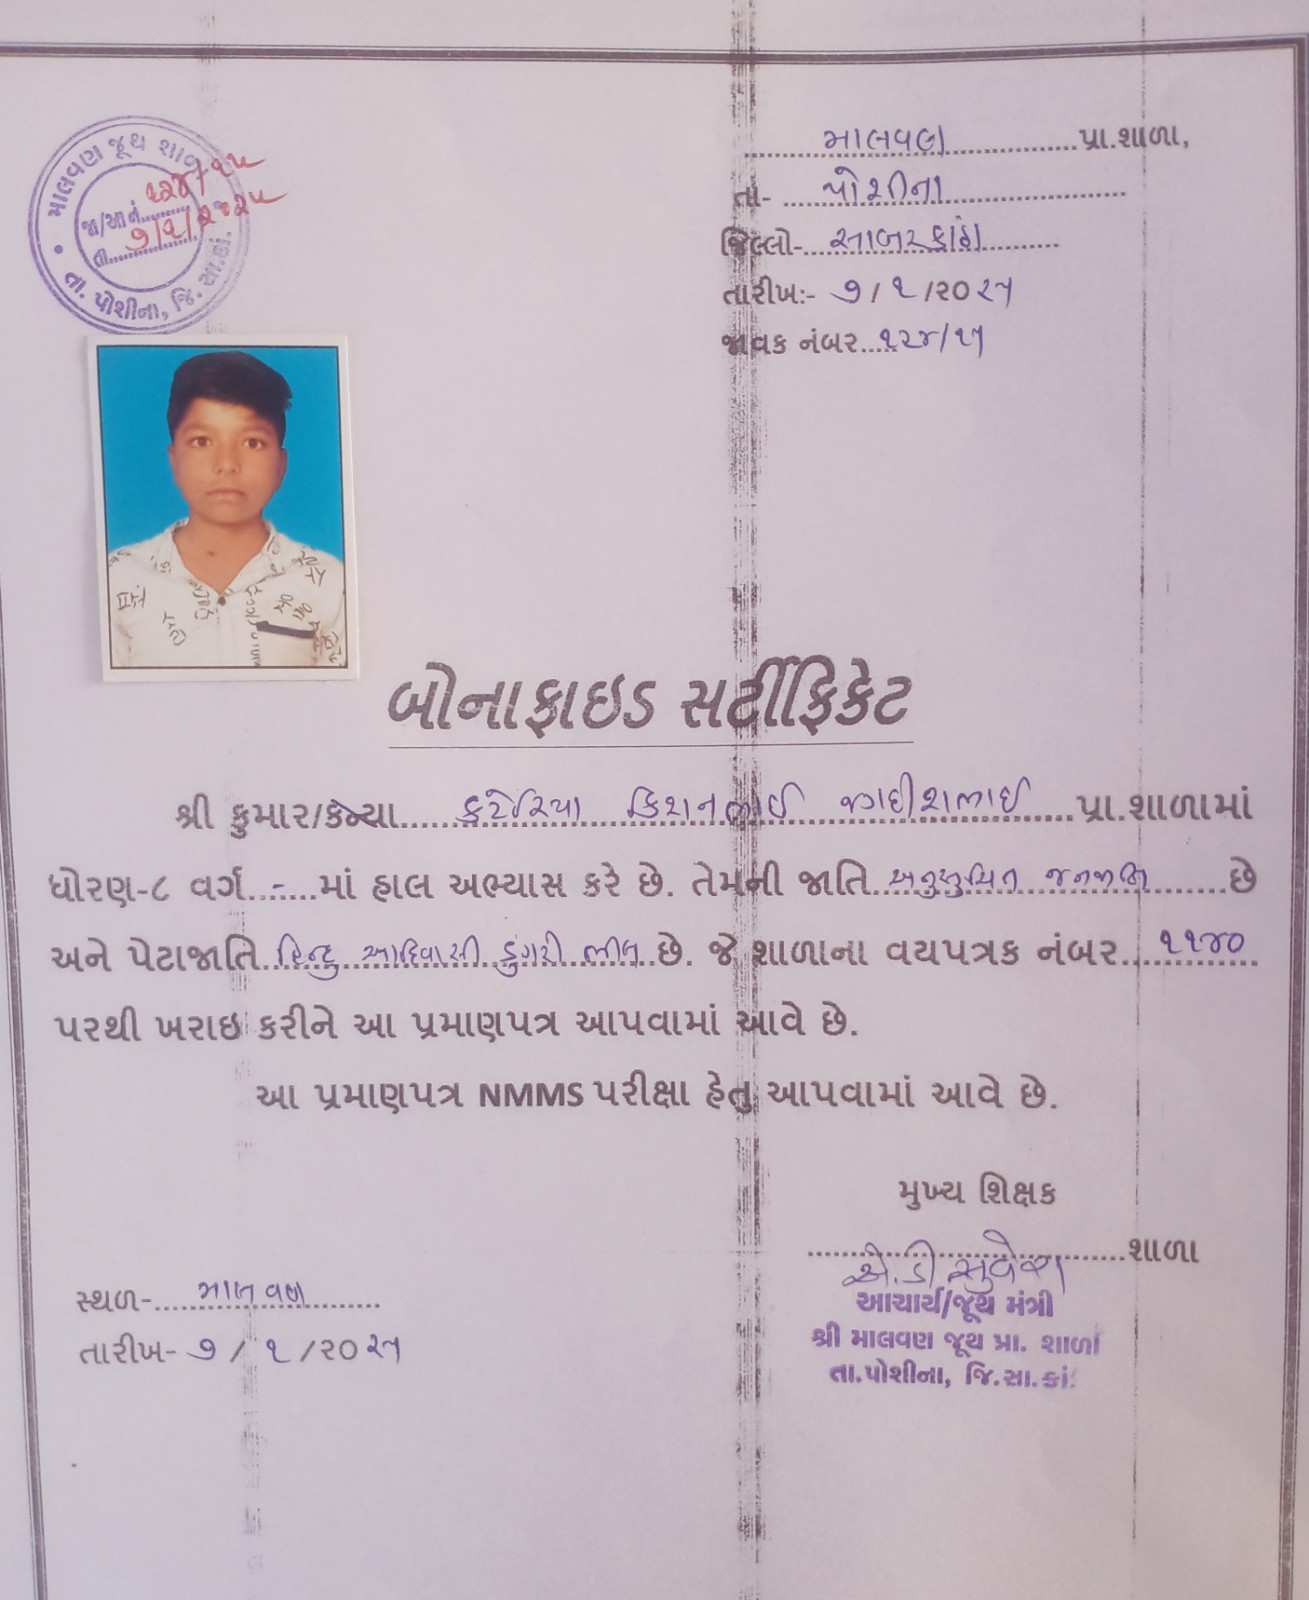 માલવણ જૂથ શાળા
જા/આ નં. ૧૨૪/૨૫
તા. ૭/૧/૨૦૨૫
તા. પોશીના, જિ. સા.કાં.
માલવણ પ્રા.શાળા,
તા- પોશીના
જિલ્લો- સાબરકાંઠા
તારીખ:- ૭/૧/૨૦૨૫
જાવક નંબર ૧૨૪/૨૫
બોનાફાઇડ સર્ટીફિકેટ
શ્રી કુમાર/કન્યા કટેરિયા કિશનભાઈ જગદીશભાઈ પ્રા.શાળામાં
ધોરણ-૮ વર્ગ - માં હાલ અભ્યાસ કરે છે. તેમની જાતિ અનુસુચિત જનજાતિ છે
અને પેટાજાતિ હિન્દુ આદિવાસી ડુંગરી ભીલ છે. જે શાળાના વયપત્રક નંબર ૧૧૪૦
પરથી ખરાઇ કરીને આ પ્રમાણપત્ર આપવામાં આવે છે.
આ પ્રમાણપત્ર NMMS પરીક્ષા હેતુ આપવામાં આવે છે.
મુખ્ય શિક્ષક
શાળા
એ.ડી સુવેરા
આચાર્ય/જૂથ મંત્રી
શ્રી માલવણ જૂથ પ્રા. શાળા
તા.પોશીના, જિ.સા.કાં.
સ્થળ- માલવણ
તારીખ- ૭/૧/૨૦૨૫